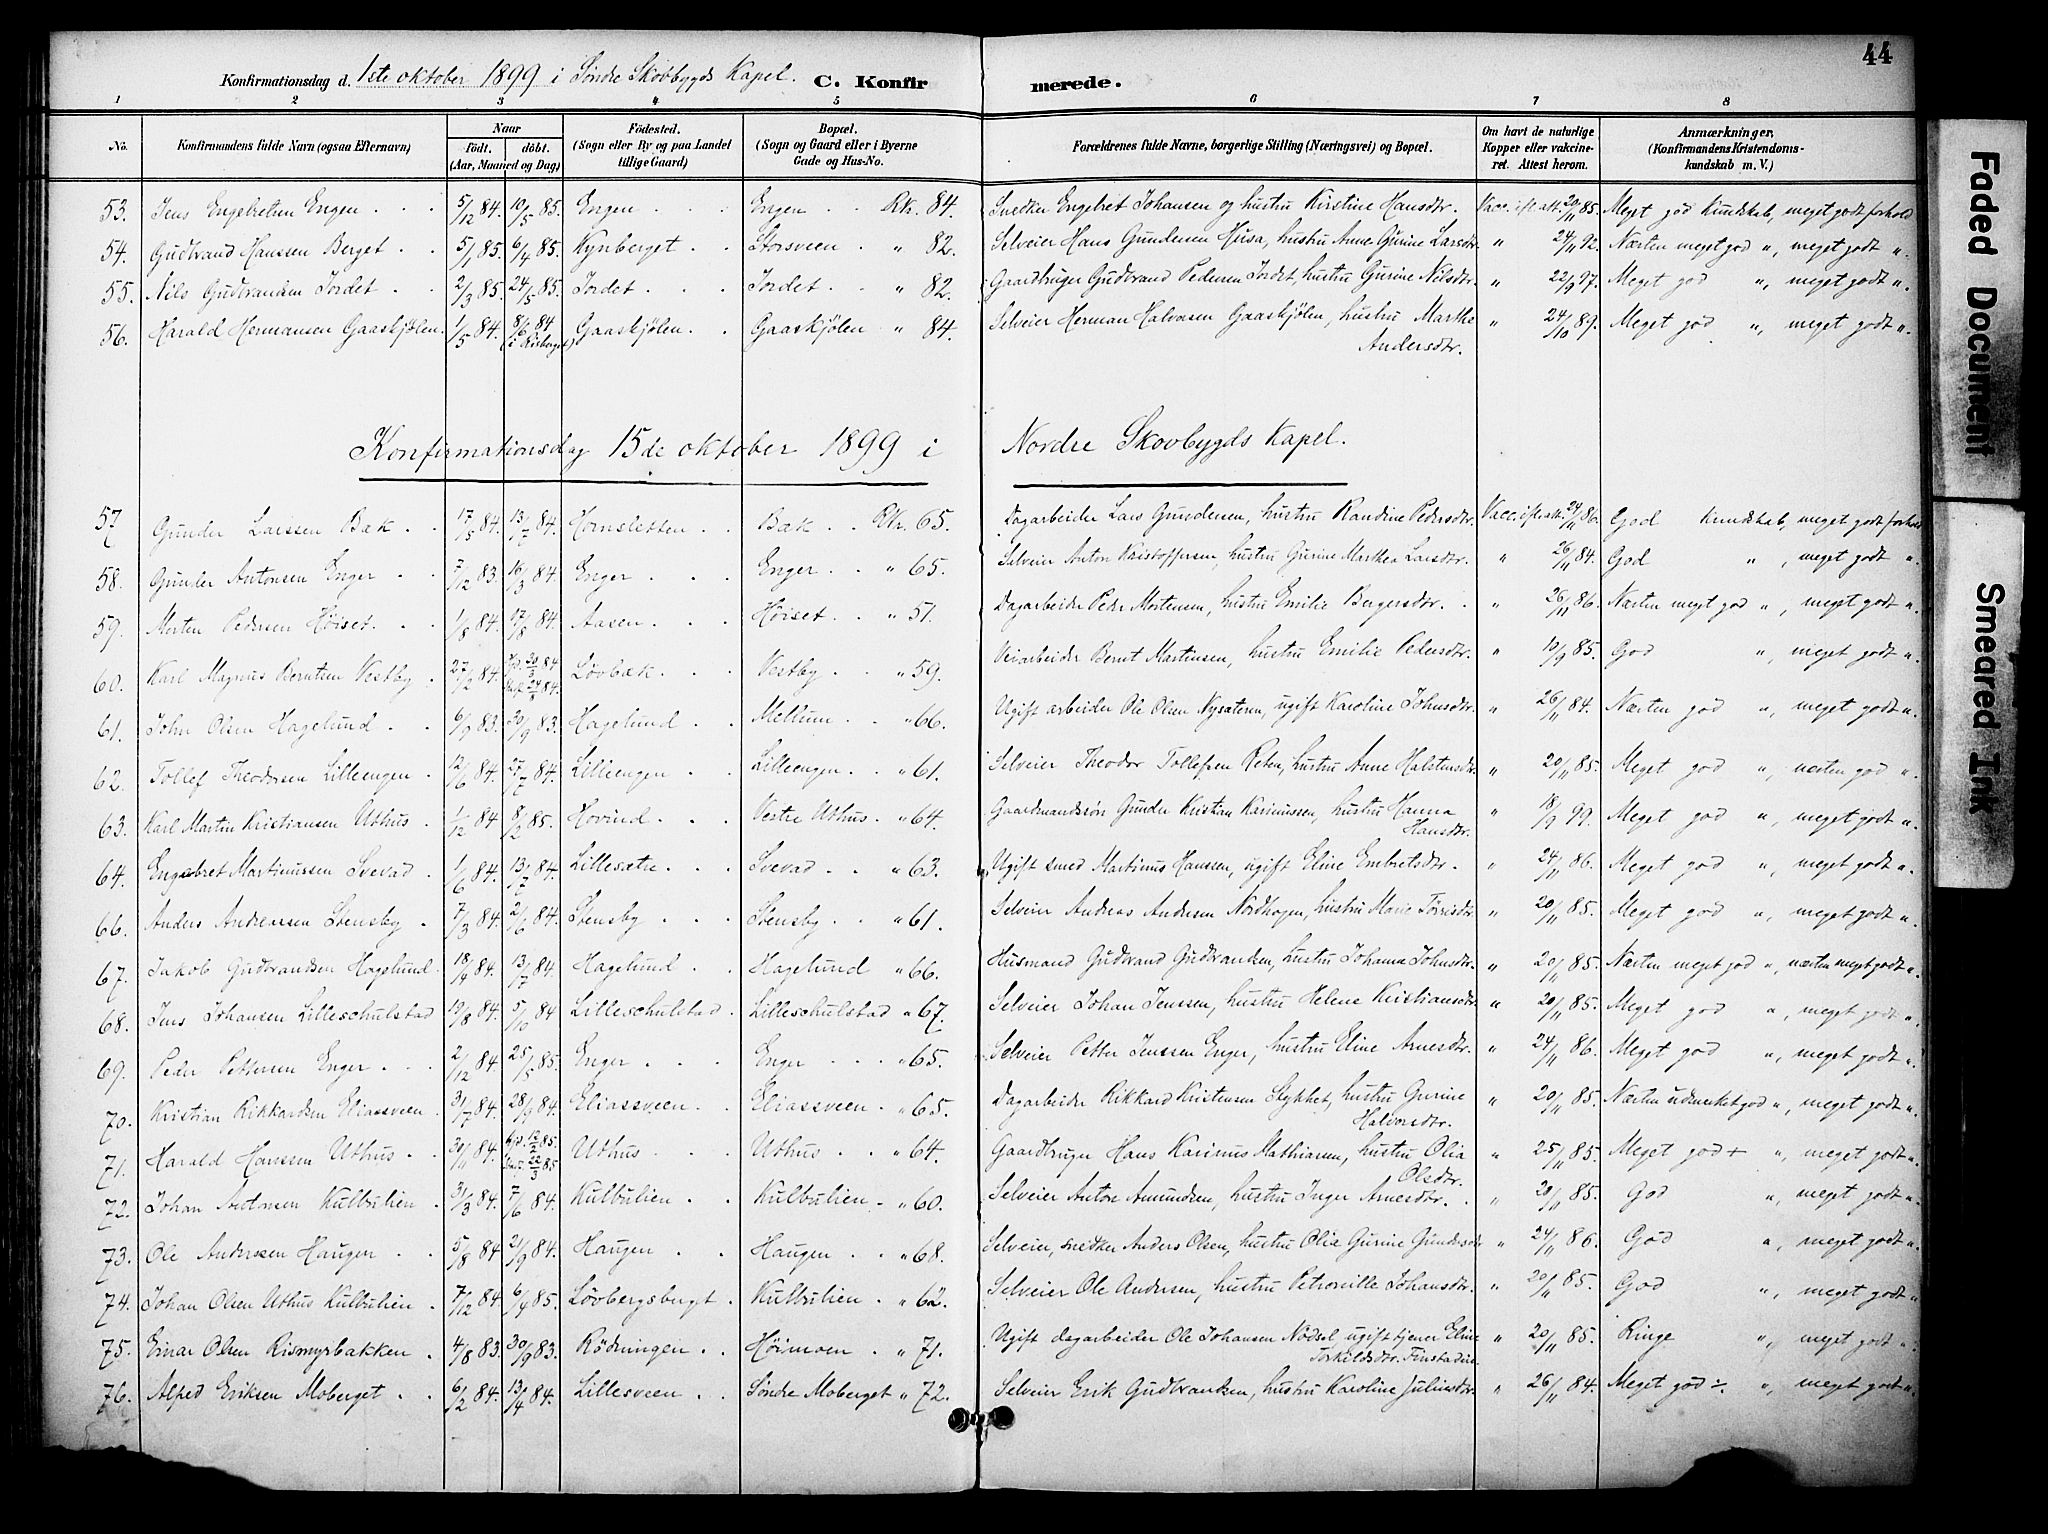 44
Konfirmationsdag d. 1ste oktober 1899 i Søndre Skovbygds Kapel. C. Konfirmerede.
1 2 3 4 5 6 7 8
No. Konfirmandens fulde Navn (ogsaa Efternavn) Naar födt. döbt. (Aar, Maaned og Dag) Födested. (Sogn eller By og paa Landet tillige Gaard) Bopæl. (Sogn og Gaard eller i Byerne Gade og Hus-No.) Forældrenes fulde Navne, borgerlige Stilling (Næringsvei) og Bopæl. Om havt de naturlige Kopper eller vakcineret. Attest herom. Anmærkninger. (Konfirmandens Kristendomskundskab m. V.)
53. Jens Engebretsen Engen 5/12 84. 10/5 85. Engen Engen Rkr. 84. Snedker Engebret Johansen og hustru Kirstine Hansdtr. Vacc. ifl. att. 20/11 85. Meget god Kundskab, meget godt forhold
54. Gudbrand Hanssen Berget 5/1 85. 6/4 85. Kynberget Storsveen " 82. Selveier Hans Gundersen Husa, hustru Anne Gurine Larsdtr. " 24/11 92. Næsten meget god ", meget godt ".
55. Nils Gudbrandsen Jordet 2/3 85. 24/5 85. Jordet Jordet " 82. Gaardbruger Gudbrand Pedersen Jordet, hustru Gurine Nilsdtr. " 22/9 97. Meget god ", meget godt ".
56. Harald Hermansen Gaaskjølen. 1/5 84. 8/6 84 Gaaskjølen. Gaaskjølen " 84. Selveier Herman Halvorsen Gaaskjølen, hustru Marthe Andersdtr. " 24/10 89. Meget god ", meget godt ".
Konfirmationsdag 15de oktober 1899 i Nordre Skovbygds Kapel.
57 Gunder Larssen Bæk 17/5 84. 13/7 84. Hornsletten Bæk Rkr. 65. Dagarbeider Lars Gundersen, hustru Randine Pedersdtr. Vacc. ifl. att. 24/11 86. God Kundskab, meget godt forhold
58. Gunder Antonsen Enger 7/12 83. 16/3 84. Enger Enger " 65. Selveier Anton Kristoffersen, hustru Gurine Marthea Larsdtr. " 26/11 84. God ", meget godt ".
59. Morten Pedersen Høiset. 1/8 84. 17/8 84. Aasen Høiset " 51. Dagarbeider Peder Mortensen, hustru Emilie Bergersdtr. " 26/11 86. Næsten meget god ", meget godt ".
60. Karl Magnus Berntsen Vestby 27/2 84. Løvbæk Vestby " 59. Veiarbeider Bernt Martinsen, hustru Emilie Pedersdtr. " 10/9 85. God ", meget godt ".
61. John Olsen Hagelund 6/9 83. 30/9 83. Hagelund Mellum " 66. Ugift arbeider Ole Olsen Nysæteren, ugift Karoline Johnsdtr. " 26/11 84. Næsten god ", meget godt ".
62. Tollef Theodorsen Lilleengen 12/6 84. 27/7 84. Lilleengen Lilleengen " 61. Selveier Theodor Tollefsen Reten, hustru Anne Halstensdtr. " 20/11 85. Meget god ", næsten god ".
63. Karl Martin Kristiansen Uthus 1/12 84 8/2 85. Hovind Vestre Uthus " 64. Gaardmandssøn Gunder Kristian Karinussen, hustru Hanna Hansdtr. " 18/9 99. Meget god ", meget godt ".
64. Engebret Martinussen Svevad 1/6 84. 13/7 84. Lillesætre Svevad " 63. Ugift smed Martinus Hanssen, ugift Eline Embretsdtr. " 24/11 86. Meget god ", meget godt ".
66. Anders Andreassen Stensby 7/3 84. 2/6 84. Stensby Stensby " 61. Selveier Andreas Andersen Nordhagen, hustru Marie Tørrisdtr. " 20/11 85. Meget god ", meget godt ".
67. Jakob Gudbrandsen Hagelund. 18/4 84. 13/7 84. Hagelund Hagelund " 66. Husmand Gudbrand Gudbrandsen, hustru Johanne Johnsdtr. " 20/11 85. Næsten meget god ", næsten meget godt ".
68. Jens Johansen Lilleschulstad 19/8 84. 5/10 84 Lilleschulstad Lilleschulstad " 67. Selveier Johan Jenssen, hustru Helene Kristiansdtr. " 20/11 85. Meget god ", meget godt ".
69. Peder Pettersen Enger 2/12 84. 25/5 85. Enger Enger " 65. Selveier Petter Jenssen Enger, hustru Eline Arnesdtr. " 24/11 86. Meget god ", meget godt ".
70. Kristian Rikkardsen Eliassveen 31/7 84. 28/9 84. Eliassveen Eliassveen " 65. Dagarbeider Rikkard Kristensen Stykket, hustru Gurine Halvorsdtr. " 20/11 85. Næsten udmerket god ", meget godt ".
71. Harald Hanssen Uthus 30/11 84. Uthus Uthus " 64. Gaardbruger Hans Karinus Mathiassen, hustru Olia Olsdtr. " 25/11 85. Meget god+ ", meget godt ".
72. Johan Antonsen Kulbulien 31/3 84. 7/6 84. Kulbulien Kulbulien " 60. Selveier Anton Amundsen, hustru Inger Arnesdtr. " 20/11 85. God ", meget godt ".
73. Ole Anderssen Haugen 5/8 84 21/9 84. Haugen Haugen " 68. Selveier, snedker Anders Olsen, hustru Olia Gurine Gundersdtr " 24/11 86. God ", meget godt ".
74. Johan Olsen Uthus Kulbulien 7/12 84. 6/4 85. Løvbergsberget Kulbulien " 62. Selveier Ole Andersen, hustru Petronille Johansdtr. " 20/11 85. God ", meget godt ".
75. Einar Olsen Rismyrbakken 4/8 83. 30/9 83. Rødningen Høimoen " 71. Ugift dagarbeider Ole Johansen Nødsel ugift tjener Eline Torkildsdtr. Finstadeie " 20/11 85. Ringe ", meget godt ".
76. Alfred Eriksen Moberget 6/2 84. 13/4 84. Lillesveen Søndre Moberget " 72. Selveier Erik Gudbrandsen, hustru Karoline Juliusdtr. " 26/11 84. Meget god ÷ ", meget godt ".
Faded Document
Smeared Ink